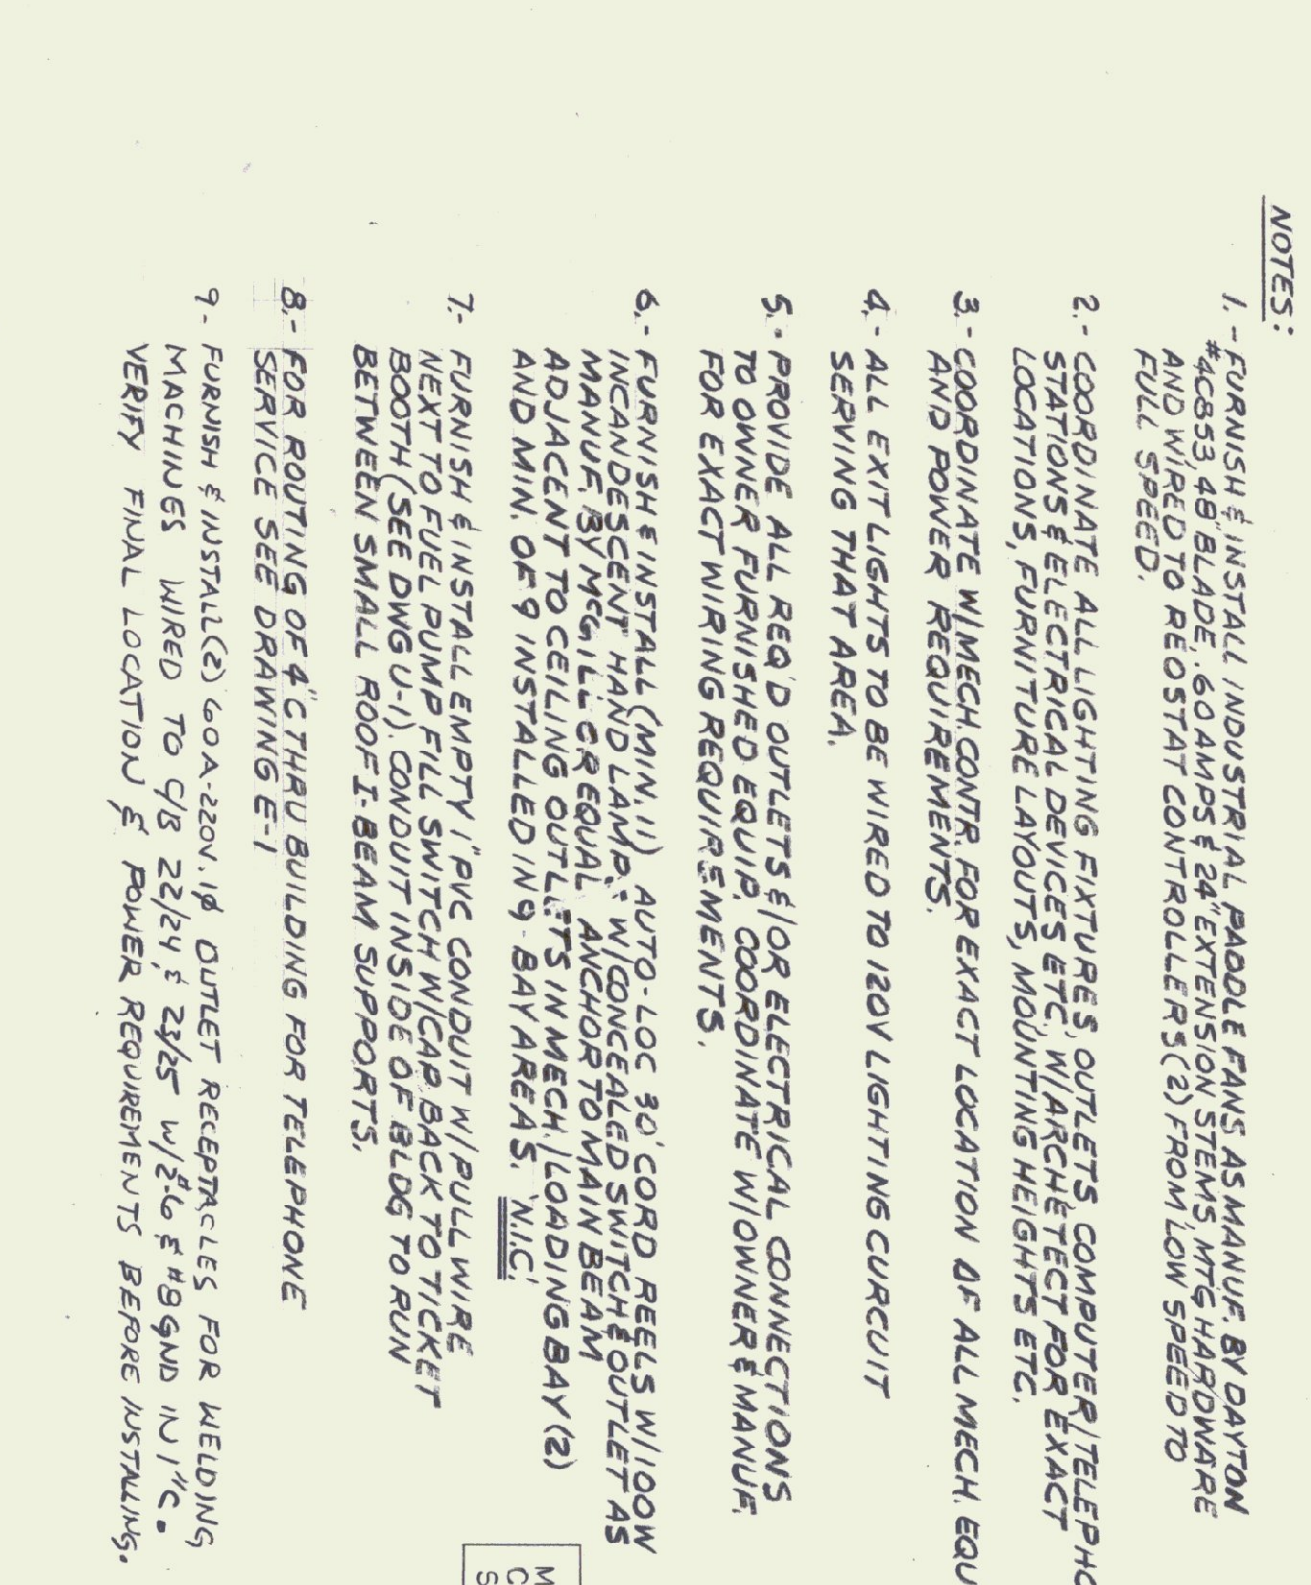 NOTES:
1.- FURNISH & INSTALL INDUSTRIAL PADDLE FANS AS MANUF. BY DAYTON
#4C853, 48" BLADE, .60 AMPS & 24" EXTENSION STEMS, MTG HARDWARE
AND WIRED TO REOSTAT CONTROLLERS (2) FROM LOW SPEED TO
FULL SPEED.
2.- COORDINATE ALL LIGHTING FIXTURES, OUTLETS, COMPUTER/TELEPHO
STATIONS & ELECTRICAL DEVICES ETC., W/ARCHETECT FOR EXACT
LOCATIONS, FURNITURE LAYOUTS, MOUNTING HEIGHTS ETC.
3.- COORDINATE W/MECH. CONTR. FOR EXACT LOCATION OF ALL MECH. EQU
AND POWER REQUIREMENTS.
4.- ALL EXIT LIGHTS TO BE WIRED TO 120V LIGHTING CURCUIT
SERVING THAT AREA.
5.- PROVIDE ALL REQ'D OUTLETS &/OR ELECTRICAL CONNECTIONS
TO OWNER FURNISHED EQUIP. COORDINATE W/OWNER & MANUF.
FOR EXACT WIRING REQUIREMENTS.
6.- FURNISH & INSTALL (MIN. 11) AUTO-LOC 30' CORD REELS W/100W
INCANDESCENT HAND LAMPS W/CONCEALED SWITCH & OUTLET AS
MANUF. BY McGILL OR EQUAL ANCHOR TO MAIN BEAM
ADJACENT TO CEILING OUTLETS IN MECH./LOADING BAY (2)
AND MIN. OF 9 INSTALLED IN 9-BAY AREAS. 'N.I.C.'
7.- FURNISH & INSTALL EMPTY 1" PVC CONDUIT W/PULL WIRE
NEXT TO FUEL PUMP FILL SWITCH W/CAP BACK TO TICKET
BOOTH (SEE DWG U-1). CONDUIT INSIDE OF BLDG TO RUN
BETWEEN SMALL ROOF I-BEAM SUPPORTS.
8.- FOR ROUTING OF 4"C THRU BUILDING FOR TELEPHONE
SERVICE SEE DRAWING E-1
9- FURNISH & INSTALL (2) 60A-220V. 1ø OUTLET RECEPTACLES FOR WELDING
MACHINES WIRED TO C/B 22/24 & 23/25 W/2-#6 & #8GND IN 1"C.
VERIFY FINAL LOCATION & POWER REQUIREMENTS BEFORE INSTALLING.
M
C
S